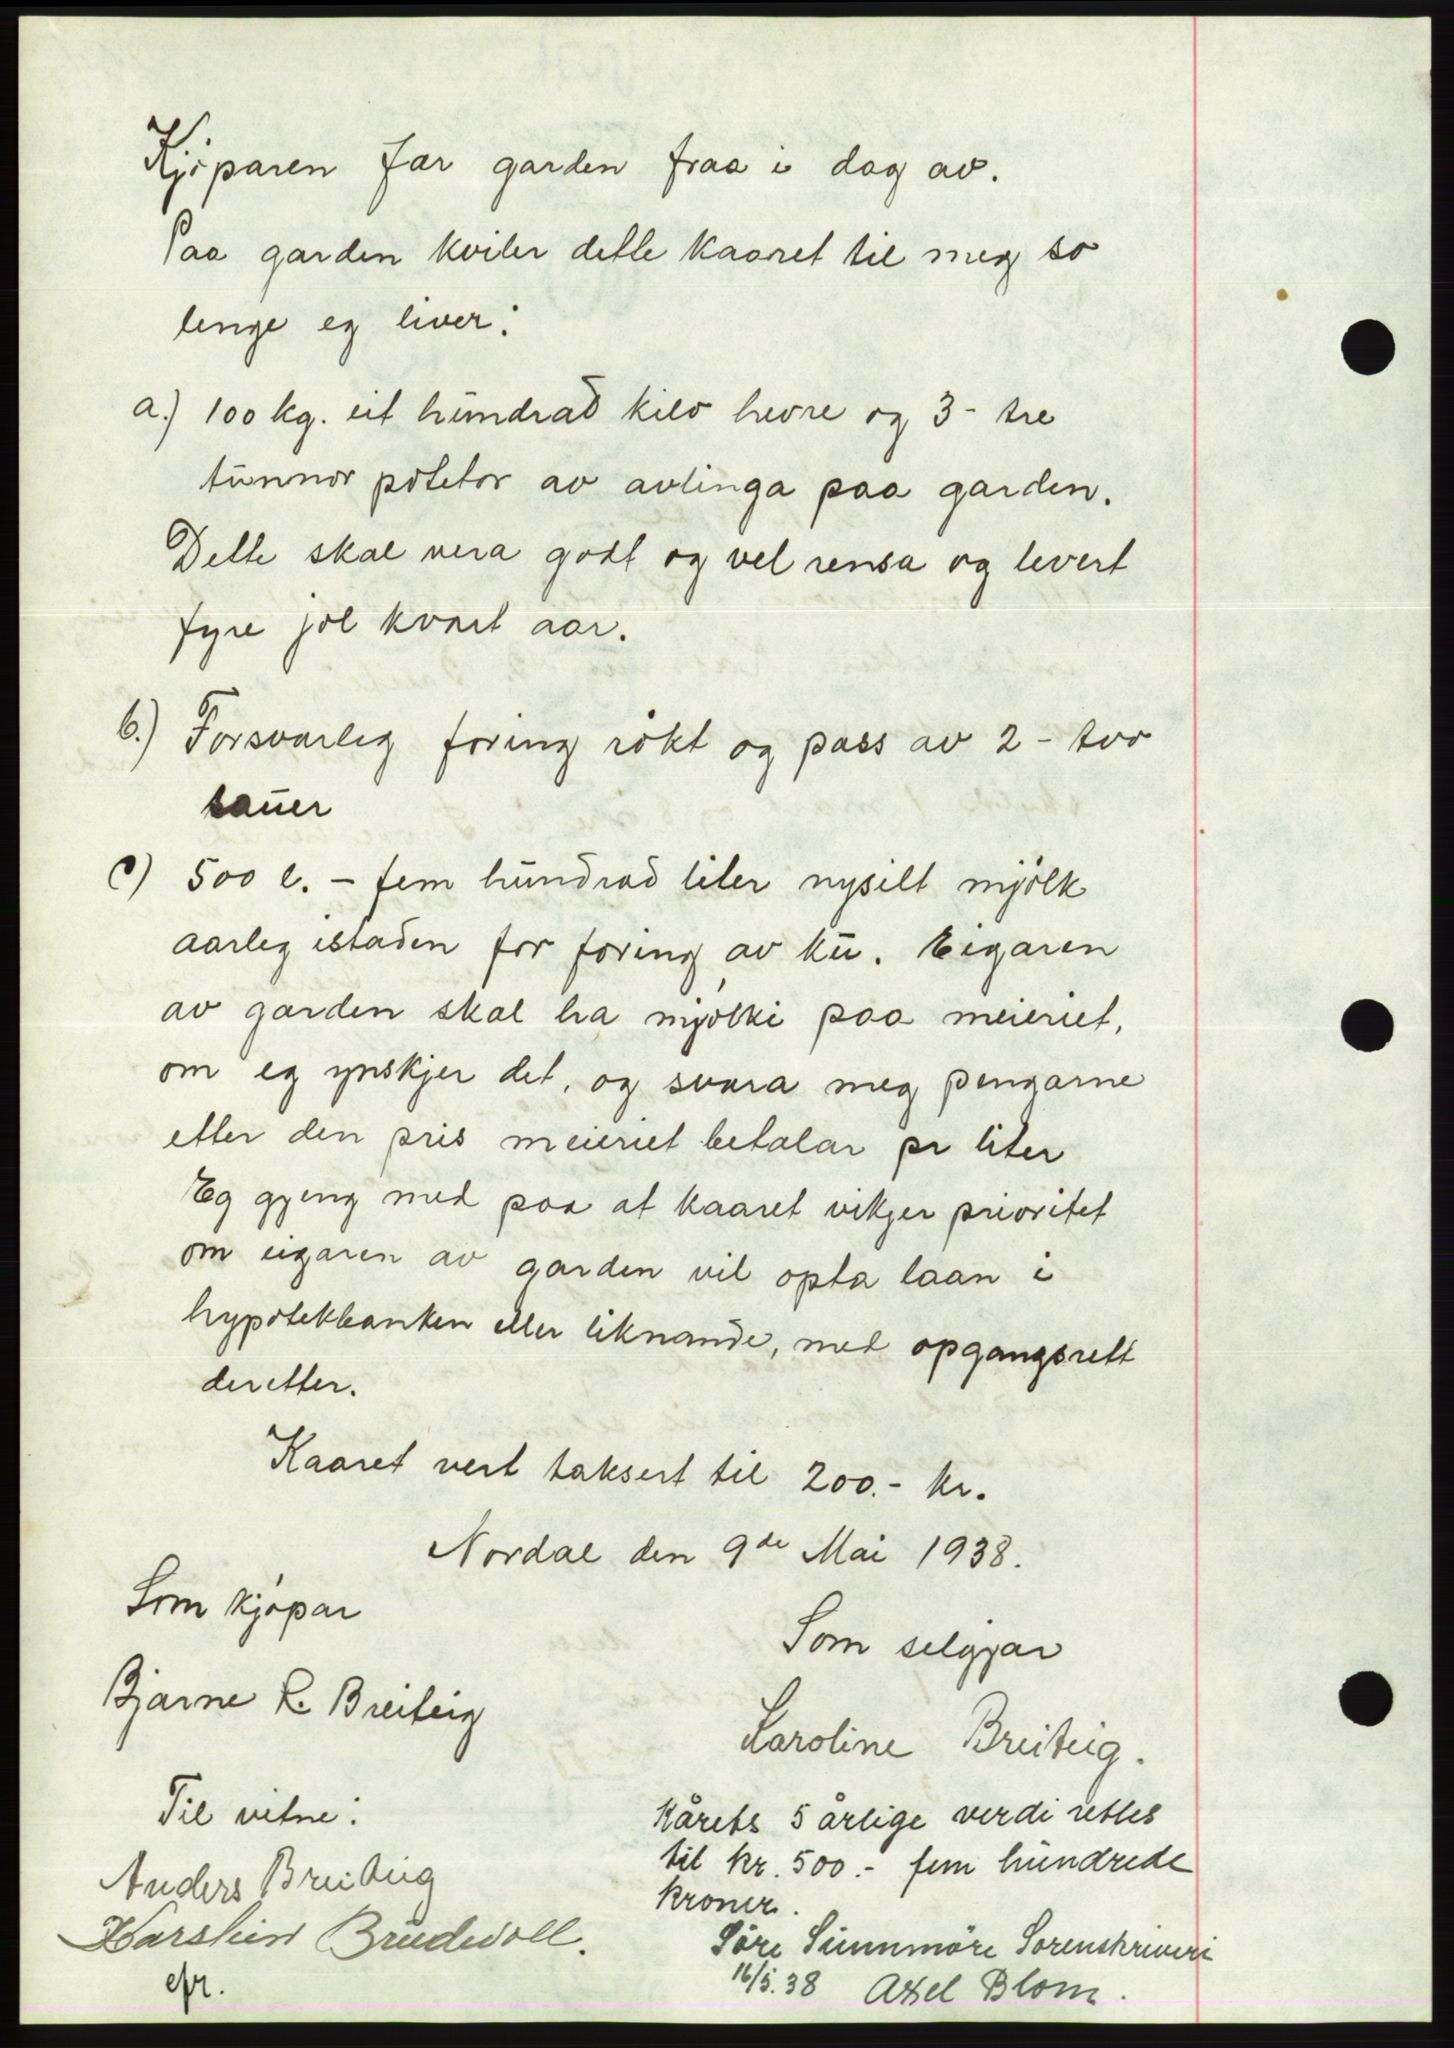 Kjöparen fær garden fraa i dag av.
Paa garden kviler dette kaaret til meg so
lenge eg liver:
a.) 100 kg. eit hundrad kilo havre og 3 - tre
tunnor potetor av avlinga paa garden.
Dette skal vera godt og vel rensa og levert
fyre jol kvart aar.
b.) Forsvarleg foring rökt og pass av 2 - tvo
sauer
c) 500 l. - fem hundrad liter nysilt mjölk
aarleg istaden for foring av ku. Eigaren
av garden skal ha mjölki paa meieriet,
om eg ynskjer det, og svara meg pengarne
etter den pris meieriet betalar pr liter
Eg gjeng med paa at kaaret vikjer prioritet
om eigaren av garden vil opta laan i
hypotekbanken eller liknande, med opgangsrett
deretter.
Kaaret vert taksert til 200.- kr.
Nordal den 9de Mai 1938.
Som kjöpar
Som seljgar
Bjarne R. Breiteig
Karoline Breiteig.
Til vitne:
Anders Breiteig
Karstein Brudevoll.
efr.
Kårets 5 årlige verdi settes
til kr. 500.- fem hundrede
kroner.
Söre Sunnmöre Sorenskriveri
16/5.38 Axel Blom.